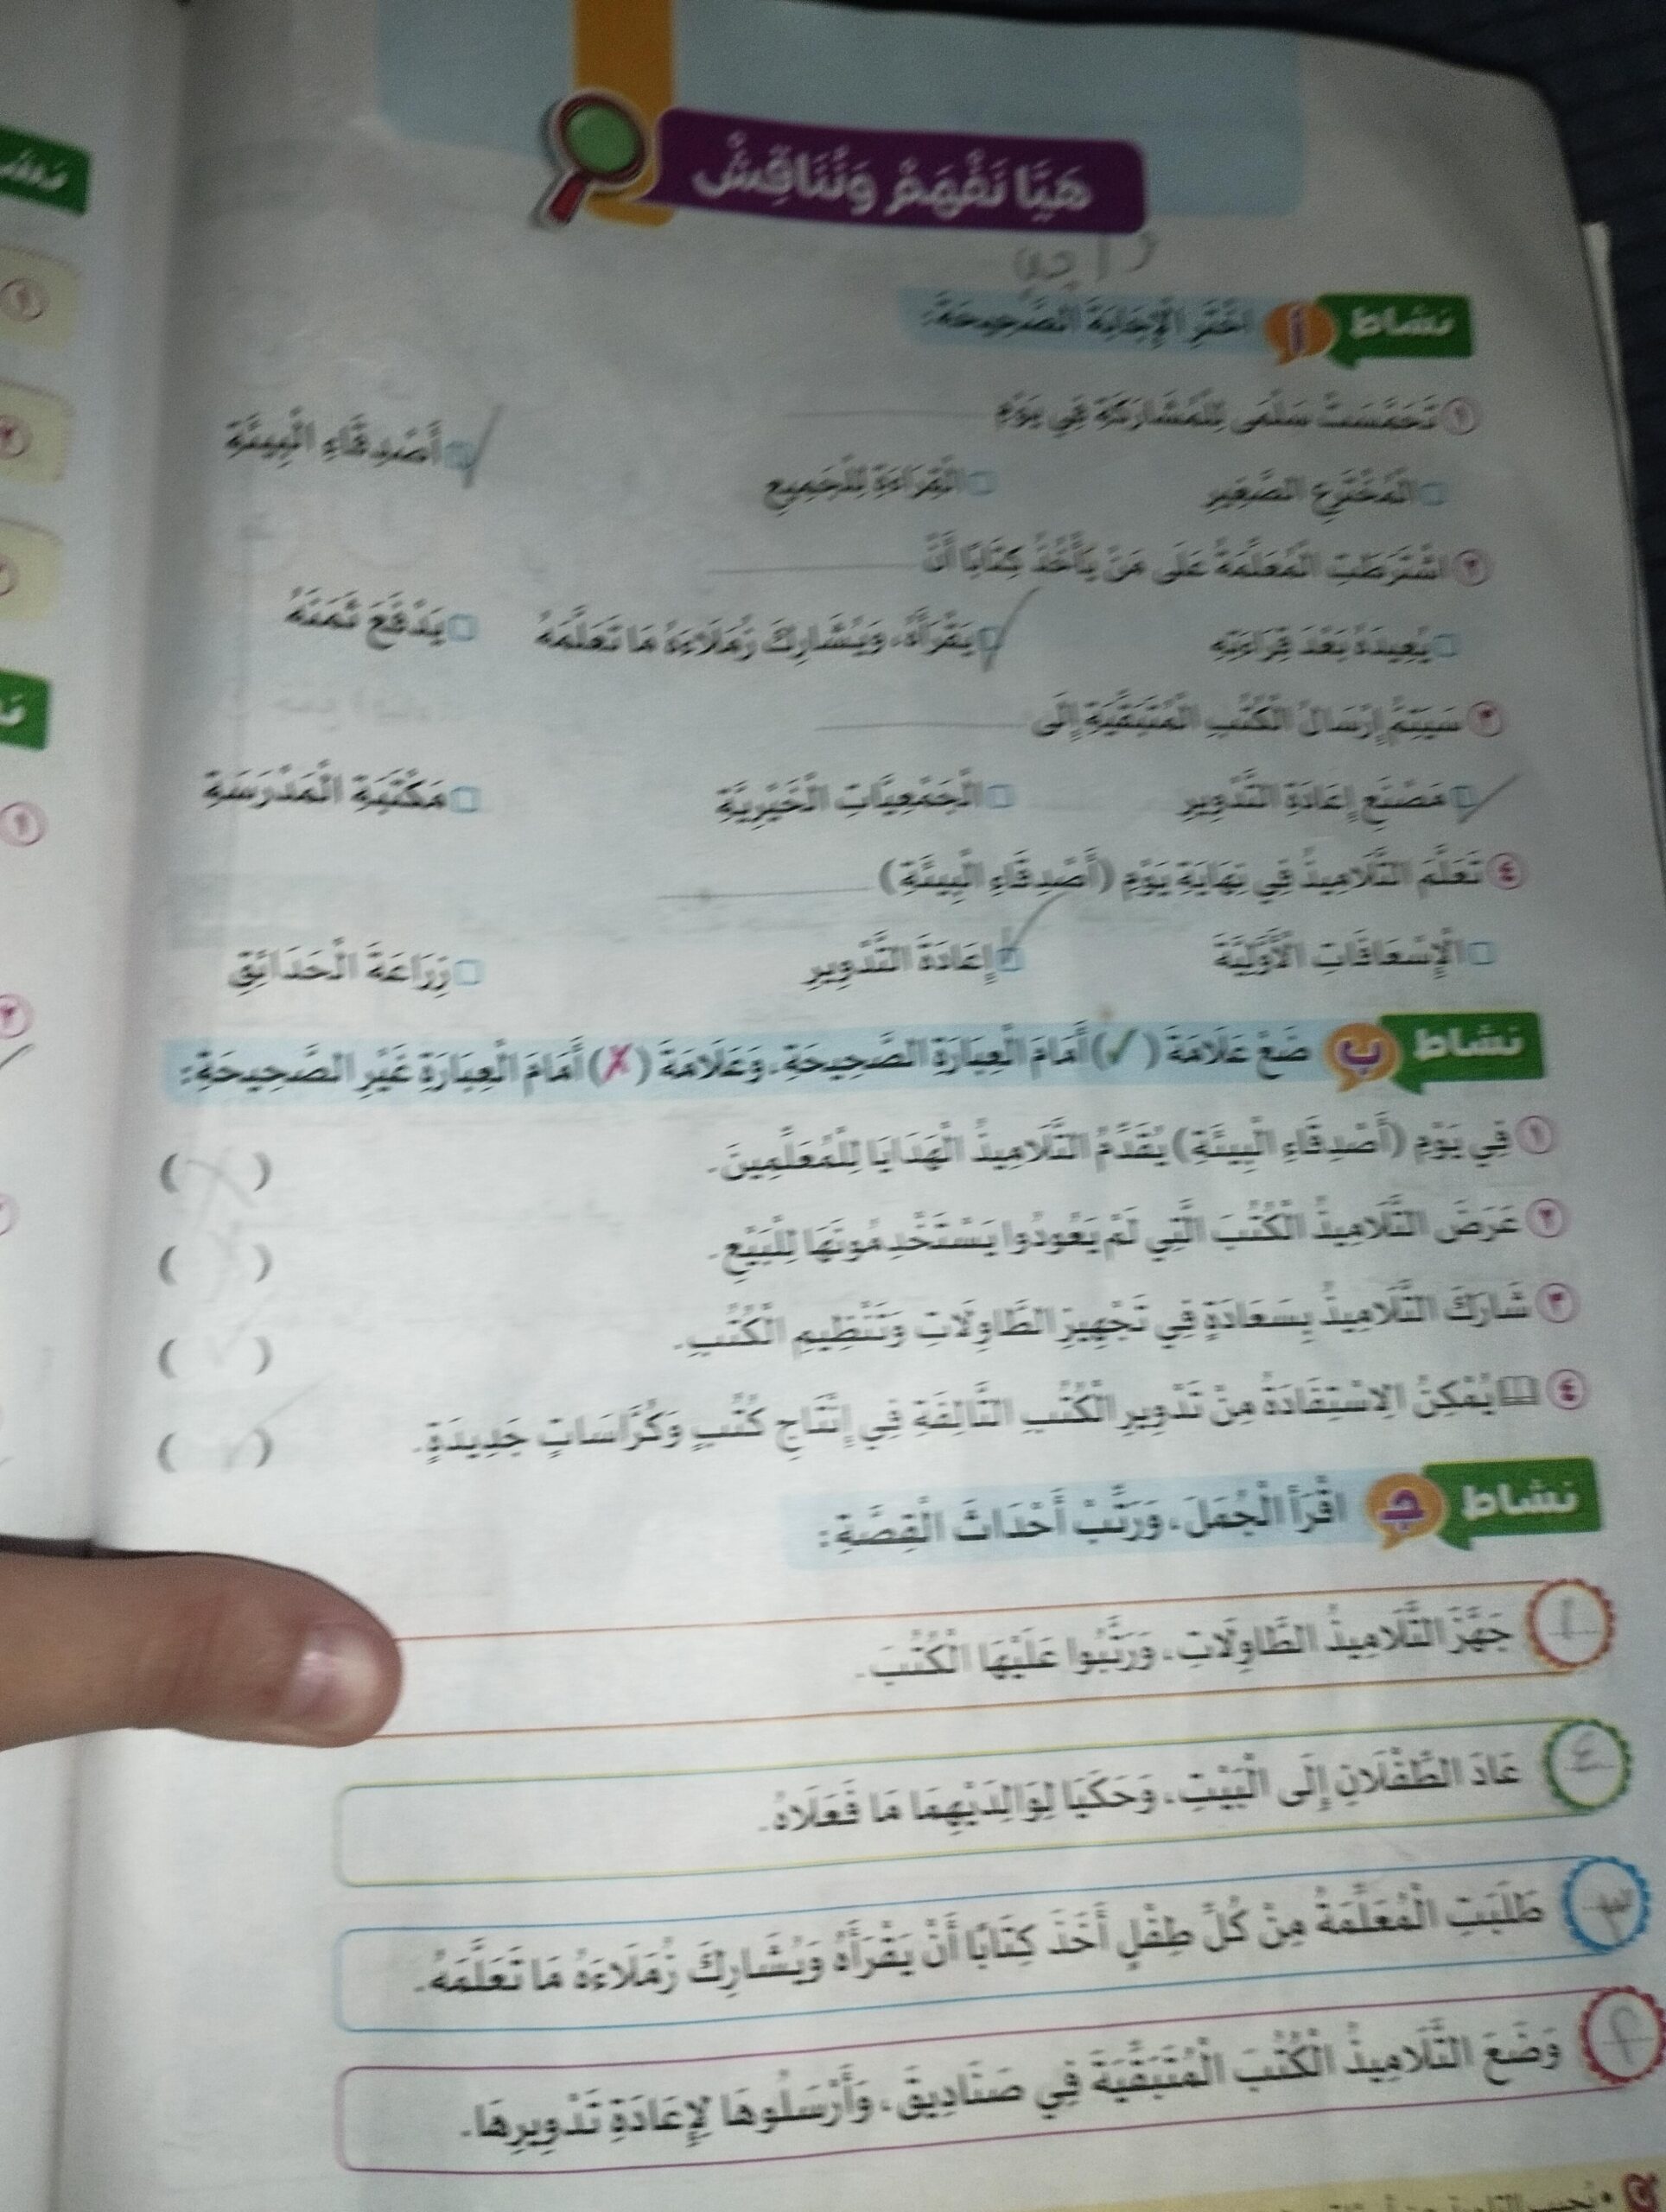 هَيَّا نَفْهَمْ وَنُنَاقِشْ
نشاط أ اخْتَرِ الْإِجَابَةَ الصَّحِيحَةَ:
١ تَحَمَّسَتْ سَلْمَى لِلْمُشَارَكَةِ فِي يَوْمِ
الْمُخْتَرِعِ الصَّغِيرِ الْقِرَاءَةُ لِلْجَمِيعِ أَصْدِقَاءِ الْبِيئَةِ
٢ اشْتَرَطَتِ الْمُعَلِّمَةُ عَلَى مَنْ يَأْخُذُ كِتَابًا أَنْ
يُعِيدَهُ بَعْدَ قِرَاءَتِهِ يَقْرَأَهُ، وَيُشَارِكَ زُمَلَاءَهُ مَا تَعَلَّمَهُ يَدْفَعَ ثَمَنَهُ
٣ سَيَتِمُّ إِرْسَالُ الْكُتُبِ الْمُتَبَقِّيَةِ إِلَى
مَصْنَعِ إِعَادَةِ التَّدْوِيرِ الْجَمْعِيَّاتِ الْخَيْرِيَّةِ مَكْتَبَةِ الْمَدْرَسَةِ
٤ تَعَلَّمَ التَّلَامِيذُ فِي نِهَايَةِ يَوْمِ (أَصْدِقَاءِ الْبِيئَةِ)
الْإِسْعَافَاتِ الْأَوَّلِيَّةَ إِعَادَةَ التَّدْوِيرِ زِرَاعَةَ الْحَدَائِقِ
نشاط ب ضَعْ عَلَامَةَ (✓) أَمَامَ الْعِبَارَةِ الصَّحِيحَةِ، وَعَلَامَةَ (✗) أَمَامَ الْعِبَارَةِ غَيْرِ الصَّحِيحَةِ:
١ فِي يَوْمِ (أَصْدِقَاءِ الْبِيئَةِ) يُقَدِّمُ التَّلَامِيذُ الْهَدَايَا لِلْمُعَلِّمِينَ. ( )
٢ عَرَضَ التَّلَامِيذُ الْكُتُبَ الَّتِي لَمْ يَعُودُوا يَسْتَخْدِمُونَهَا لِلْبَيْعِ. ( )
٣ شَارَكَ التَّلَامِيذُ بِسَعَادَةٍ فِي تَجْهِيزِ الطَّاوِلَاتِ وَتَنْظِيمِ الْكُتُبِ. ( )
٤ يُمْكِنُ الِاسْتِفَادَةُ مِنْ تَدْوِيرِ الْكُتُبِ التَّالِفَةِ فِي إِنْتَاجِ كُتُبٍ وَكُرَّاسَاتٍ جَدِيدَةٍ. ( )
نشاط جـ اقْرَأِ الْجُمَلَ، وَرَتِّبْ أَحْدَاثَ الْقِصَّةِ:
١ جَهَّزَ التَّلَامِيذُ الطَّاوِلَاتِ، وَرَتَّبُوا عَلَيْهَا الْكُتُبَ.
٤ عَادَ الطِّفْلَانِ إِلَى الْبَيْتِ، وَحَكَيَا لِوَالِدَيْهِمَا مَا فَعَلَاهُ.
طَلَبَتِ الْمُعَلِّمَةُ مِنْ كُلِّ طِفْلٍ أَخَذَ كِتَابًا أَنْ يَقْرَأَهُ وَيُشَارِكَ زُمَلَاءَهُ مَا تَعَلَّمَهُ.
وَضَعَ التَّلَامِيذُ الْكُتُبَ الْمُتَبَقِّيَةَ فِي صَنَادِيقَ، وَأَرْسَلُوهَا لِإِعَادَةِ تَدْوِيرِهَا.